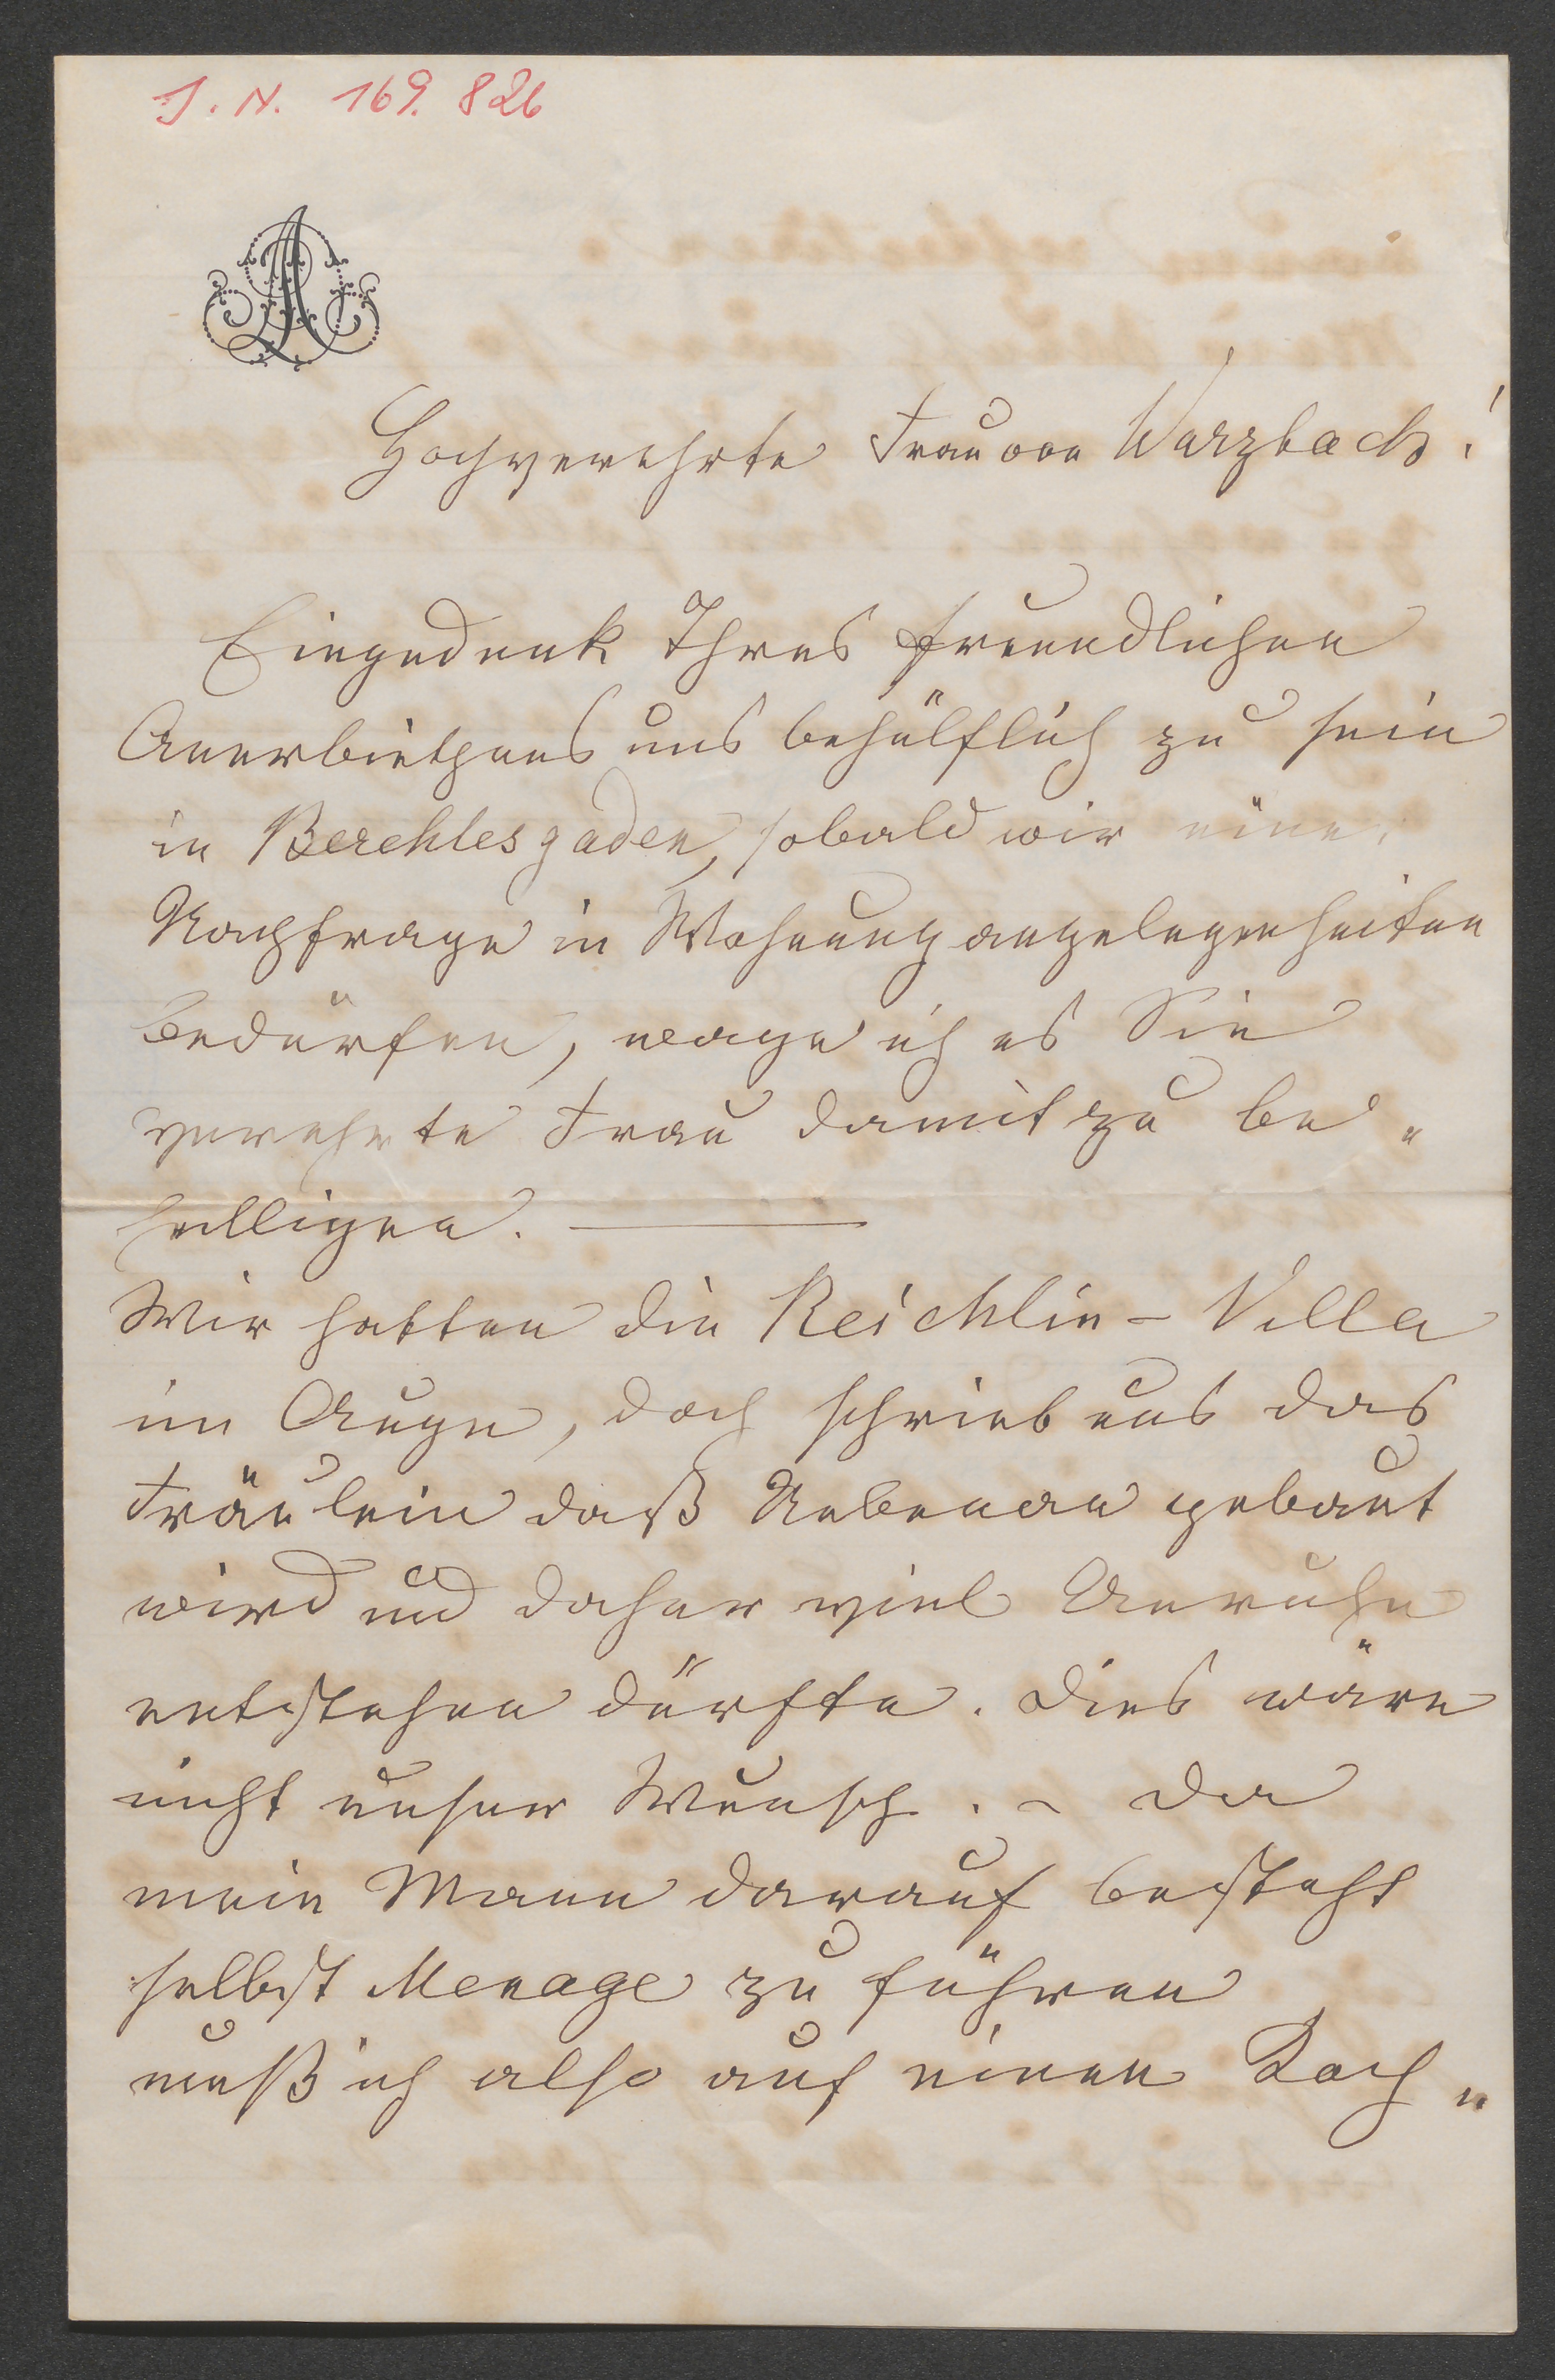 J. N. 169.826
Hochverehrte Frau von Wurzbach!
Eingedenk Ihres freundlichen
Anerbiethens uns behülflich zu sein
in Berchtesgaden, sobald wir einer
Nachfrage in Wohnungangelegenheiten
bedürfen, wage ich es Sie
verehrte Frau damit zu be„
helligen. —
Wir hatten die Reichlin – Villa
im Auge, doch schrieb uns das
Fräulein daß Nebenan gebaut
wird und daher viel Unruhe
entstehen dürfte. Dies wäre
nicht unser Wunsch. – Da
mein Mann darauf besteht
selbst Menage zu führen
muß ich also auf einen Koch„